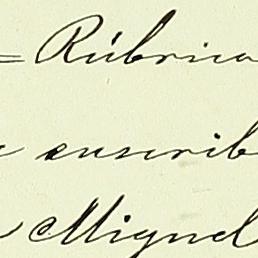 = Rúbrica
suscrib
Miguel